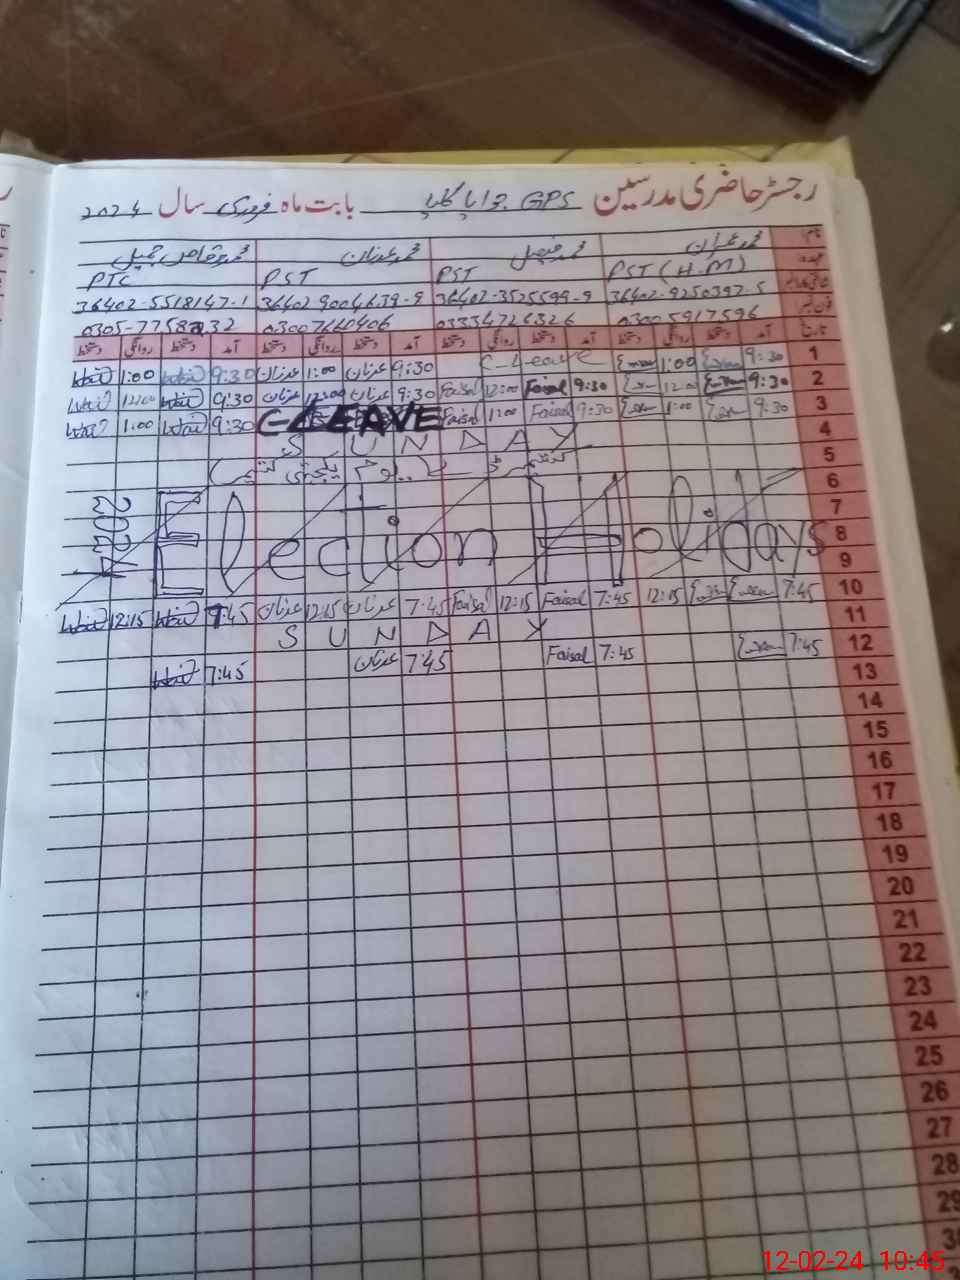 رجسٹر حاضری مدرسین GPS بابت ماہ فروری سال 2024
محمد عمران محمد فیصل محمد عدنان
PST (H.M) PST PST PTC
36402-9250397-5 36402-3525599-9 36402-9004639-9 36402-5518147-1
03005917596 03334726326 03007660406
تاریخ آمد دستخط روانگی دستخط آمد دستخط روانگی دستخط آمد دستخط روانگی دستخط آمد دستخط روانگی دستخط
1 9:30 1:00 C-Leave 9:30 عدنان 1:00 عدنان 9:30 1:00
2 9:30 12:00 9:30 Faisal 12:00 Faisal 9:30 عدنان 12:00 عدنان 9:30 12:00
3 9:30 1:00 9:30 Faisal 1:00 Faisal C-LEAVE 9:30 1:00
4 SUNDAY
5
6
7
8 Election Holidays 2024
9
10 7:45 12:15 7:45 Faisal 12:15 Faisal 7:45 عدنان 12:15 عدنان 7:45 12:15
11 SUNDAY
12 7:45 7:45 Faisal 7:45 عدنان 7:45
13
14
15
16
17
18
19
20
21
22
23
24
25
26
27
28
29
12-02-24 10:45